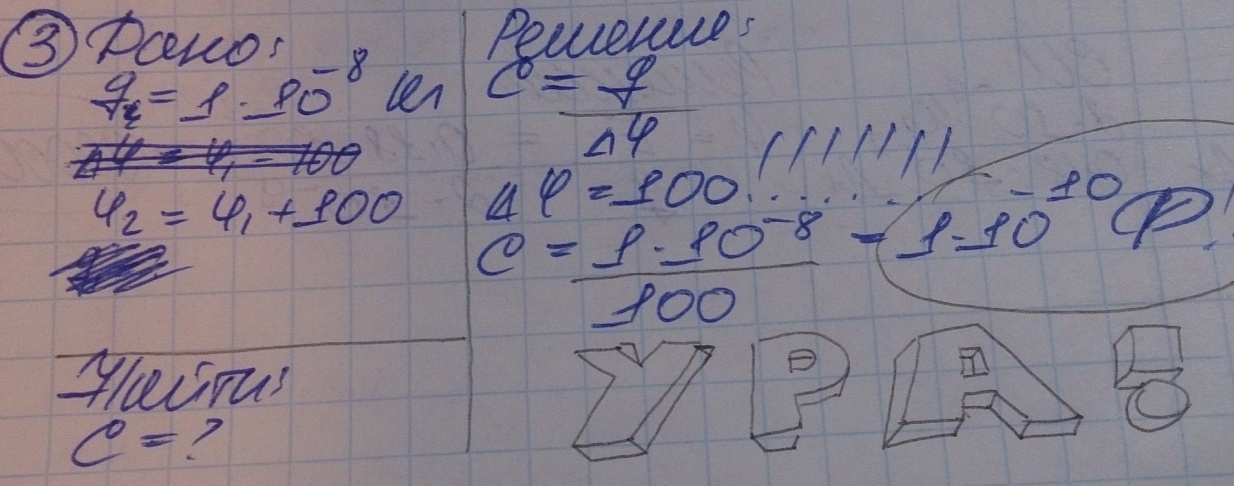 ③ Дано:
q = 1·10⁻⁸ Кл
Δφ = φ₁ - 100
φ₂ = φ₁ + 100
Найти:
C = ?
Решение:
C = q
Δφ
Δφ = 100.......!!!!!!!!
C = 1·10⁻⁸ = 1·10⁻¹⁰ Ф!
100
УРА!